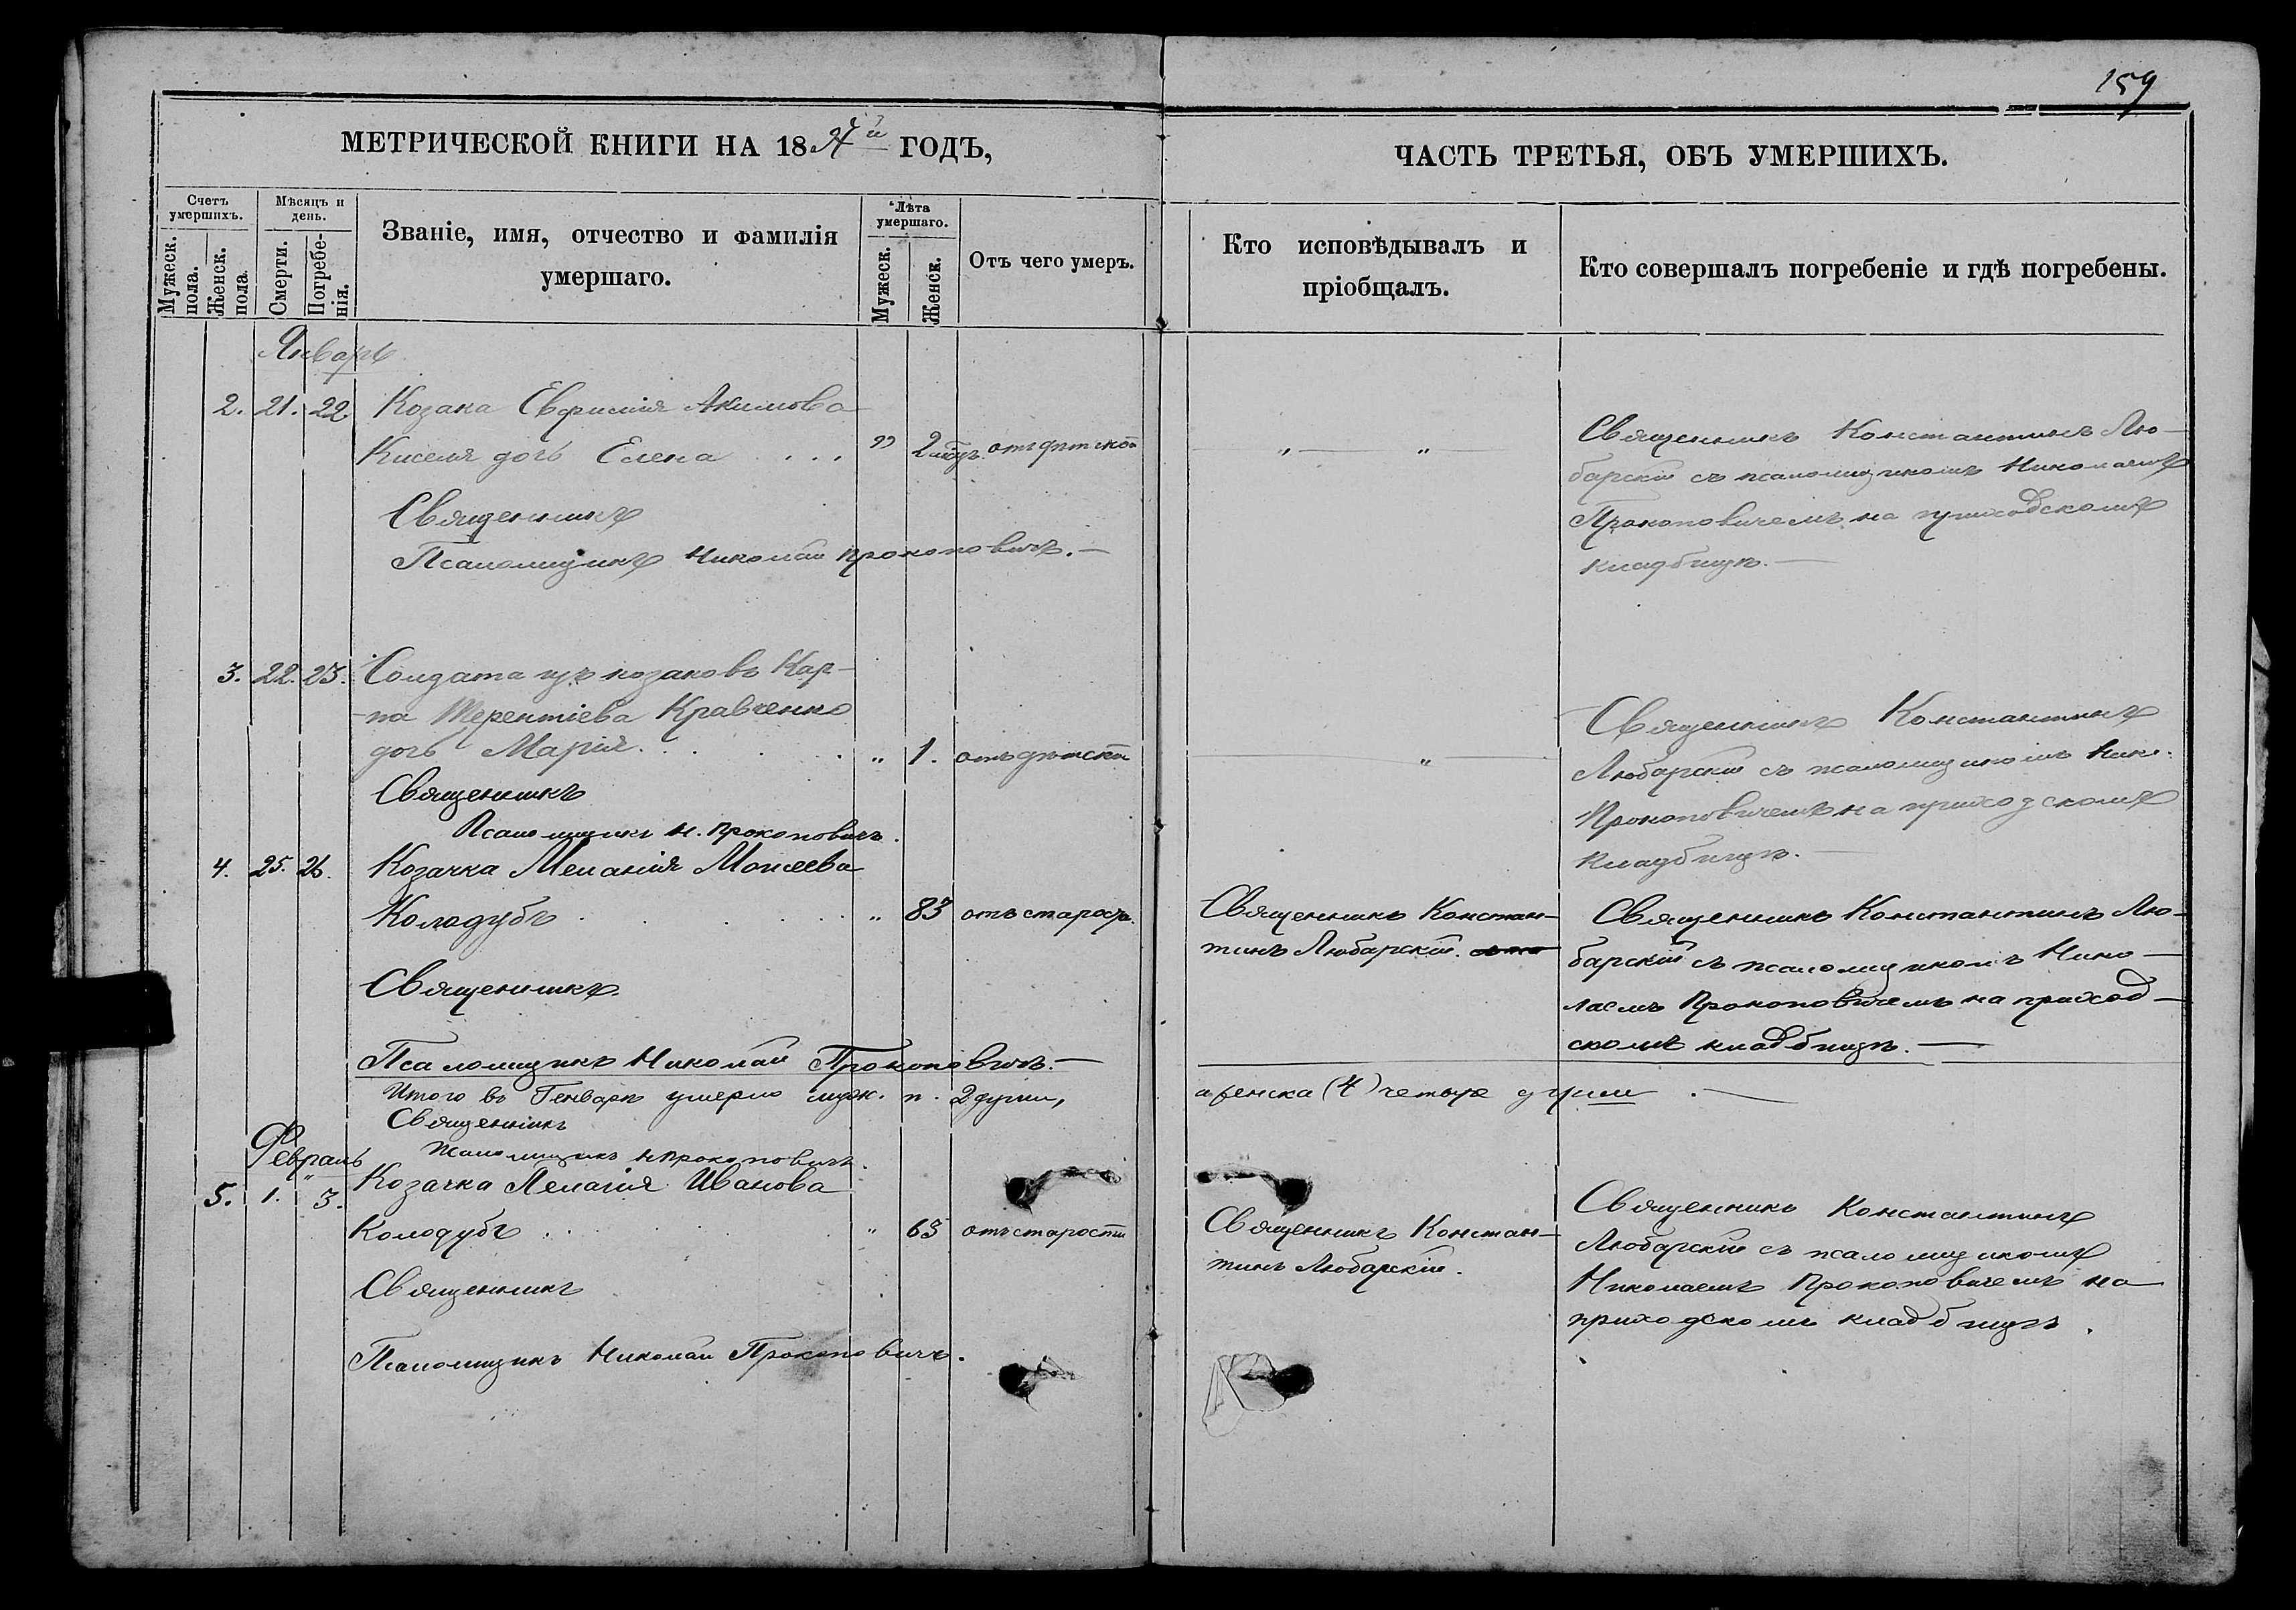 159
МЕТРИЧЕСКОЙ КНИГИ НА 18 ГОДЪ,
ЧАСТЬ ТРЕТЬЯ, ОБЪ УМЕРШИХЪ.
Счетъ умершихъ.
Мужеск. пола.
Женск. пола
Мѣсяцъ и день.
Смерти.
Погребенія.
Званіе, имя, отчество и фамилія
умершаго.
Лѣта умершаго.
Мужеск.
Женск.
Отъ чего умеръ.
Кто исповѣдывалъ и
пріобщалъ.
Кто совершалъ погребеніе и гдѣ погребены.
Январь
2. 21. 22. Козака Евфимія Акимова
Киселя дочь Елена . . . " 2 отъ дѣтской
" "
Священникъ
Псаломщикъ Николай Прокоповичъ. —
Священникъ Константинъ Лю-
барскій съ псаломщикомъ Николаемъ
Прокоповичемъ на приходскомъ
кладбищѣ. —
3. 22. 23. Солдата изъ козаковъ Кар-
па Терентіева Кравченко
дочь Марія . . . " 1. отъ дѣтской
"
Священникъ
Псаломщикъ Н. Прокоповичъ.
Священникъ Константинъ
Любарскій съ псаломщикомъ Ник.
Прокоповичемъ на приходскомъ
кладбищѣ. —
4. 25. 26. Козачка Меланія Моисеева
Колодубъ . . . " 83 отъ старост.
Священникъ.
Псаломщикъ Николай Прокоповичъ. —
Священникъ Констан-
тинъ Любарскій.
Священникъ Константинъ Лю-
барскій съ псаломщикомъ Нико-
лаемъ Прокоповичемъ на приход-
скомъ кладбищѣ. —
Итого въ Генварѣ умерло муж. п. 2 души, а женска (4) четыре души. —
Священникъ
Псаломщикъ Н Прокоповичъ.
Февраль
5. 1. 3. Козачка Пелагія Иванова
Колодубъ . . . " 63 отъ старости
Священникъ
Псаломщикъ Николай Прокоповичъ.
Священникъ Констан-
тинъ Любарскій.
Священникъ Константинъ
Любарскій съ псаломщикомъ
Николаемъ Прокоповичемъ на
приходскомъ кладбищѣ.